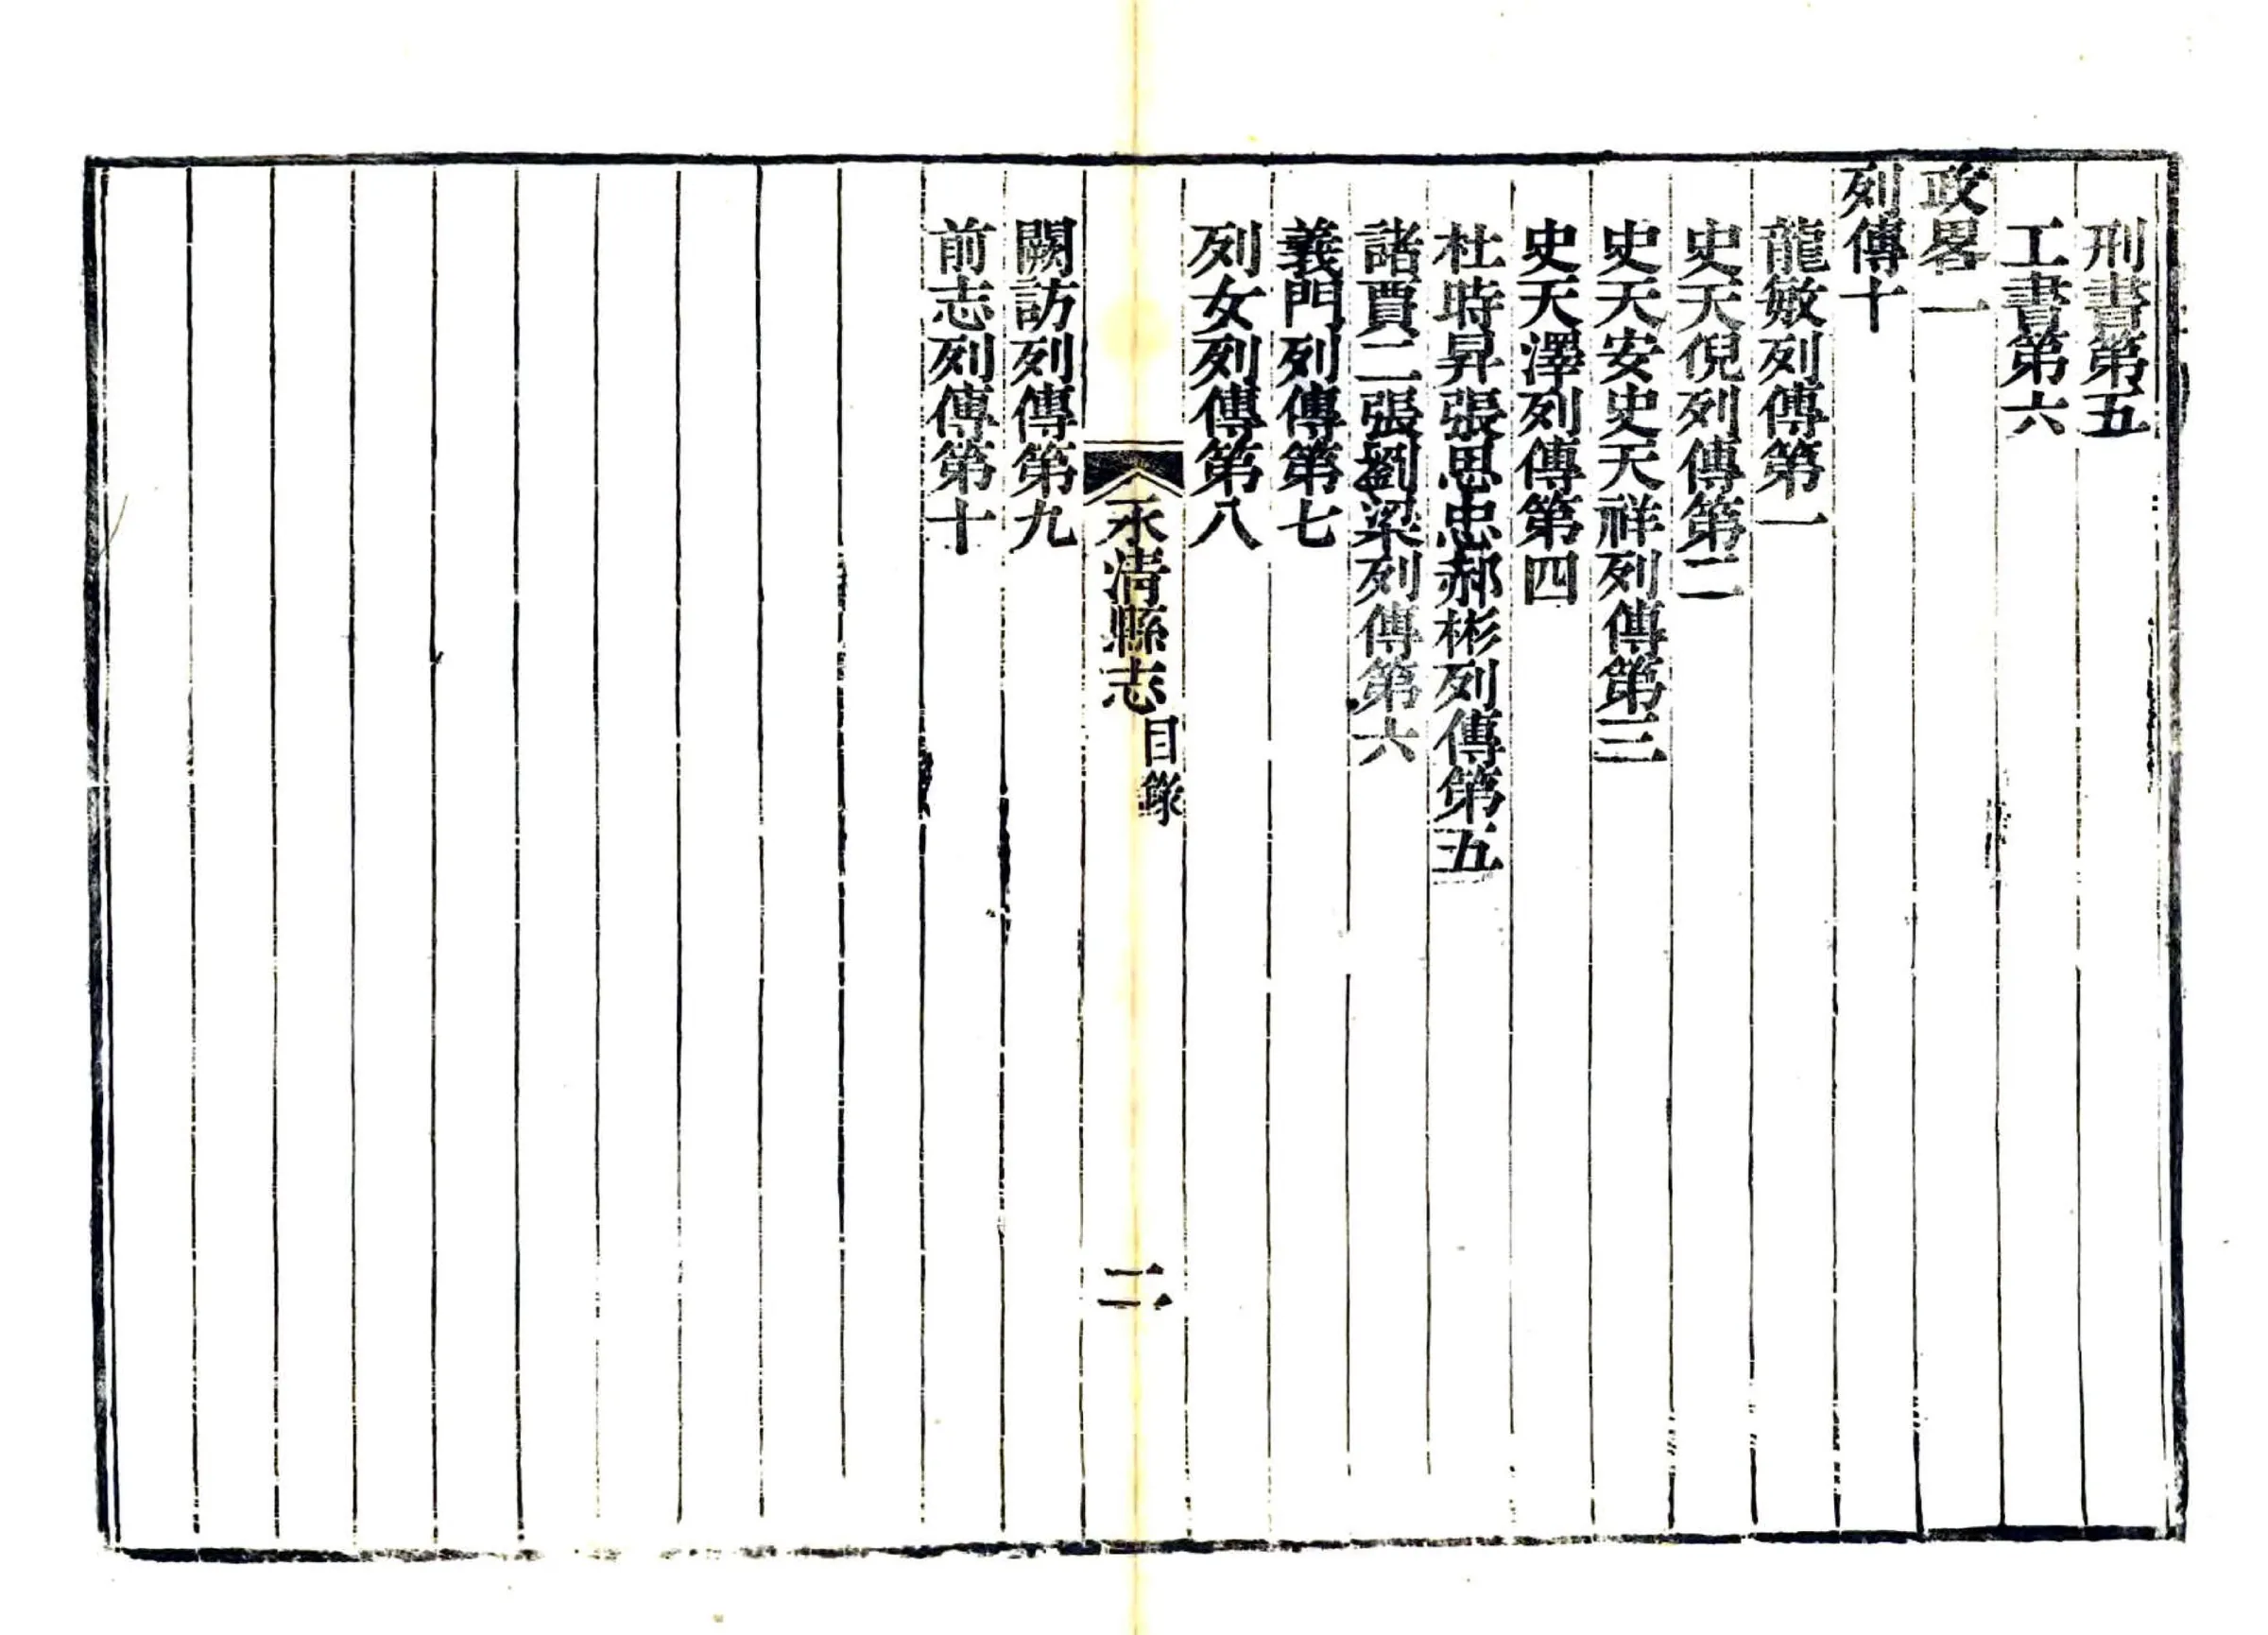 刑書第五
工書第六
政畧一
列傳十
龍敏列傳第一
史天倪列傳第二
史天安史天祥列傳第三
史天澤列傳第四
杜時昇張思忠郝彬列傳第五
諸賈二張劉梁列傳第六
義門列傳第七
列女列傳第八
永清縣志
目錄
二
闕訪列傳第九
前志列傳第十